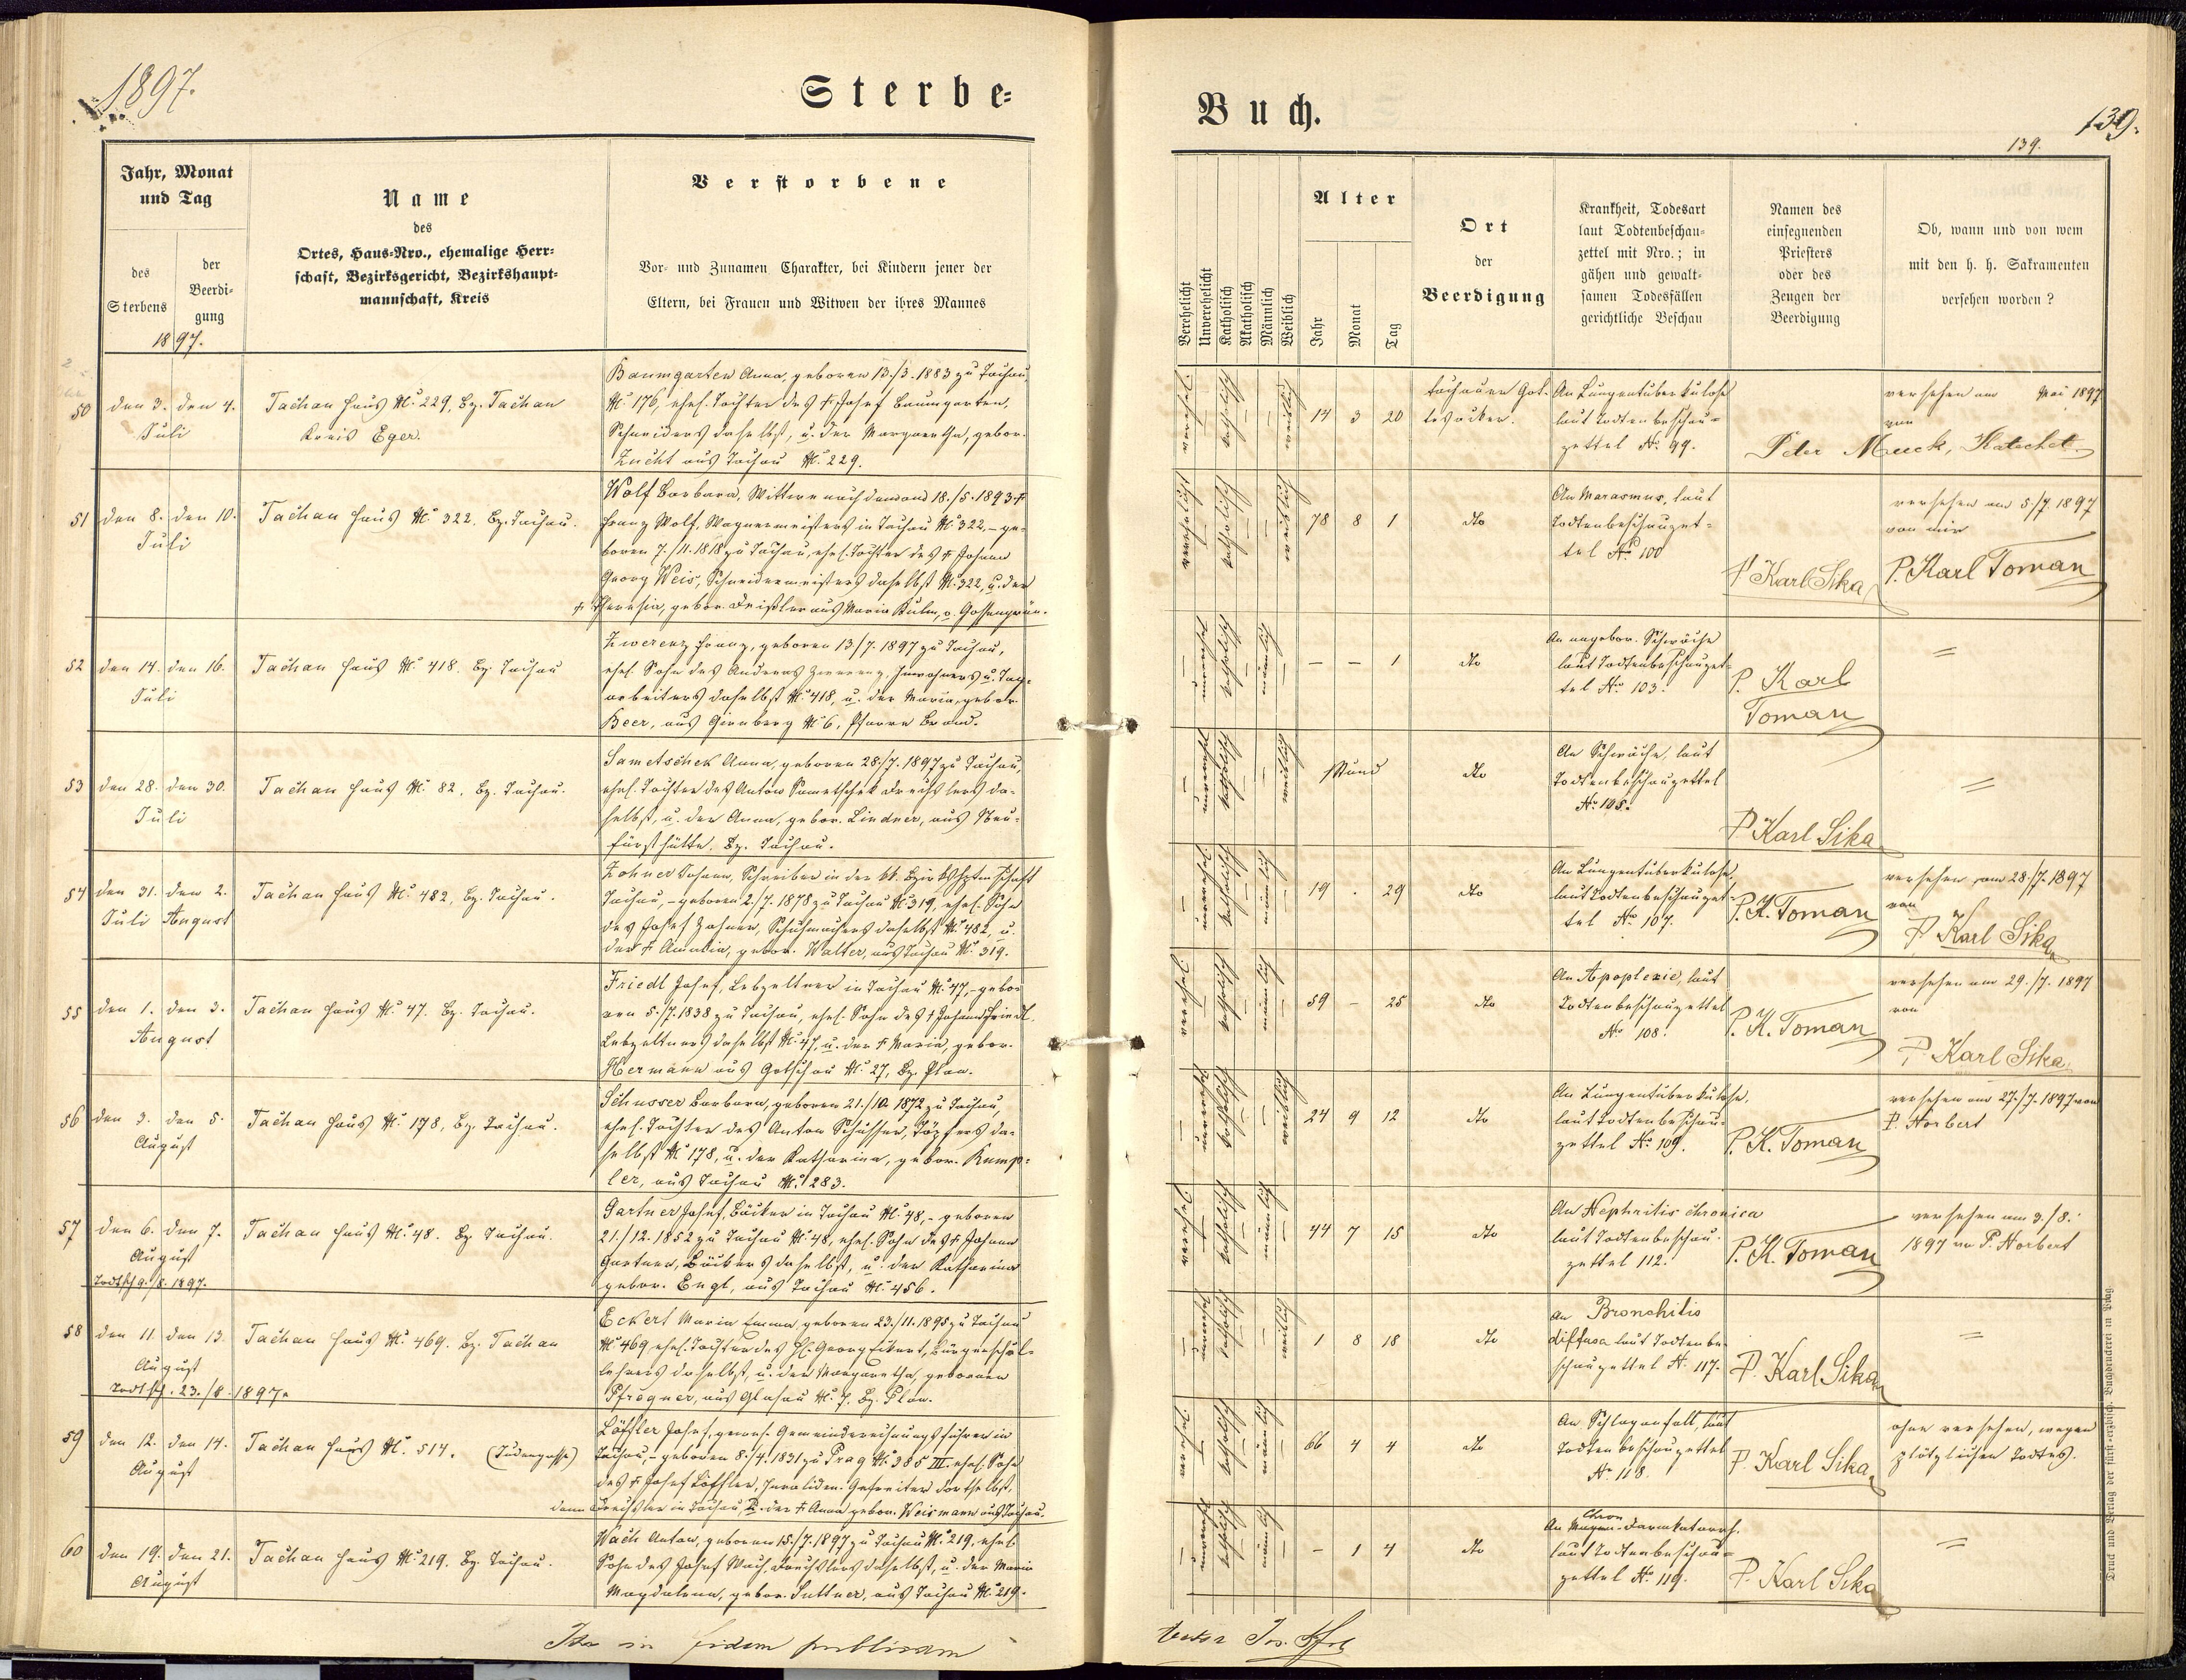 1897.
Sterbe-
Jahr, Monat
und Tag
des
Sterbens
der
Beerdi-
gung
1897.
Name
des
Ortes, Haus-Nro., ehemalige Herr-
schaft, Bezirksgericht, Bezirkshaupt-
mannschaft, Kreis
Verstorbene
Vor- und Zunamen Charakter, bei Kindern jener der
Eltern, bei Frauen und Witwen der ihres Mannes
50 den 3. den 4.
Juli
Tachau Haus No. 229, Bz. Tachau
Kreis Eger.
Baumgarten Anna, geboren 13./3. 1883 zu Tachau,
No. 176, ehel. Tochter des † Josef Baumgarten,
Schneiders daselbst, u. der Margaretha, gebor.
Zucht aus Tachau No. 229.
51 den 8. den 10.
Juli
Tachau Haus No. 322. Bz. Tachau.
Wolf Barbara, Wittwe nach dem am 18./5. 1893 †
Franz Wolf, Wagnermeisters in Tachau No. 322, - ge-
boren 7./11. 1818 zu Tachau, ehel. Tochter des † Johann
Georg Weis, Schneidermeisters daselbst No. 322, u. der
† Theresia, gebor. Deistler aus Maria Kulm, o. Gossengrün.
52 den 14. den 16.
Juli
Tachau Haus No. 418. Bz. Tachau
Zwerenz Franz, geboren 13/7. 1897 zu Tachau,
ehel. Sohn des Andreas Zwerenz, Inwohners u. Tag-
arbeiters daselbst No. 418, u. der Maria, gebor.
Beer, aus Girnberg No. 6, Pfarre Brand.
53 den 28. den 30.
Juli
Tachau Haus No. 82, Bz. Tachau.
Sametschek Anna, geboren 28./7. 1897 zu Tachau,
ehel. Tochter des Anton Sametschek Drechslers da-
selbst, u. der Anna, gebor. Lindner, aus Neu-
fürsthütte, Bz. Tachau.
54 den 31. den 2.
Juli August
Tachau Haus No. 482, Bz. Tachau.
Zohner Johann, Schreiber in der kk. Bezirkshptmschaft
Tachau, - geboren 2./7. 1878 zu Tachau No. 319, ehel. Sohn
des Josef Zohner, Schuhmachers daselbst No. 482, u.
der † Amalia, gebor. Walter, aus Tachau No. 319.
55 den 1. den 3.
August
Tachau Haus No. 47. Bz. Tachau.
Friedl Josef, Lebzeltner in Tachau No. 47, - gebo-
ren 5./7. 1838 zu Tachau, ehel. Sohn des † Johann Friedl,
Lebzeltners daselbst No. 47, u. der † Maria, gebor.
Hermann aus Gotschau No. 27, Bz. Plan.
56 den 3. den 5.
August
Tachau Haus No. 178, Bz. Tachau.
Schusser Barbara, geboren 21./10. 1872 zu Tachau,
ehel. Tochter des Anton Schusser, Töpfers da-
selbst No. 178, u. der Katharina, gebor. Rump-
ler, aus Tachau No. 283.
57 den 6. den 7.
August
Todtsch. 9./8. 1897.
Tachau Haus No. 48. Bz. Tachau.
Gartner Josef, Bäcker in Tachau No. 48, - geboren
21./12. 1852 zu Tachau No. 48, ehel. Sohn des † Johann
Gartner, Bäckers daselbst, u. der Katharina
gebor. Engl, aus Tachau No. 456.
58 den 11. den 13.
August
Todtsch. 23./8. 1897.
Tachau Haus No. 469. Bz. Tachau
Eckert Maria Emma, geboren 23./11. 1895 zu Tachau
No. 469 ehel. Tochter des H. Georg Eckert, Bürgerschul-
lehrers daselbst, u. der Margaretha, geboren
Pfregner, aus Glasau No. 7. Bz. Plan.
59 den 12. den 14.
August
Tachau Haus No. 514. (Judengasse)
Löffler Josef, gewes. Gemeinderechnungsführer in
Tachau, - geboren 8./4. 1831 zu Prag No. 385 III ehel. Sohn
des † Josef Löffler, Invaliden-Gefreiter dortselbst,
dann Drechsler in Tachau, u. der † Anna gebor. Weismann aus Tachau.
60 den 19. den 21.
August
Tachau Haus No. 219. Bz. Tachau.
Wach Anton, geboren 15./7. 1897 zu Tachau No. 219, ehel.
Sohn des Josef Wach, Drechslers daselbst, u. der Maria
Magdalena, gebor. Suttner, aus Tachau No. 219.
Ita in fidem publicam
Buch.
139.
139.
Verehelicht
Unverehelicht
Katholisch
Akatholisch
Männlich
Weiblich
Alter
Jahr
Monat
Tag
Ort
der
Beerdigung
Krankheit, Todesart
laut Todtenbeschau-
zettel mit Nro.; in
gähen und gewalt-
samen Todesfällen
gerichtliche Beschau
Namen des
einsegnenden
Priesters
oder des
Zeugen der
Beerdigung
Ob, wann und von wem
mit den h. h. Sakramenten
versehen worden?
katholisch weiblich 14 3 20
Tachauer Got-
tesacker.
An Lungentuberkulose
laut Todtenbeschau-
zettel No. 99.
versehen am Mai 1897
von
Peter Muck, Katechet
verehelicht katholisch weiblich 78 8 1 dto
An Marasmus, laut
Todtenbeschauzet-
tel No. 100
P. Karl Sika
versehen am 5/7. 1897
von mir
P. Karl Toman
unverehel. katholisch männlich - - 1 dto
An angebor. Schwäche
laut Todtenbeschauzet-
tel No. 103.
P. Karl
Toman
=
unverehel. katholisch weiblich Stund dto
An Schwäche, laut
Todtenbeschauzettel
No. 105.
P. Karl Sika
=
unverehel. katholisch männlich 19 . 29 dto
An Lungentuberkulose,
laut Todtenbeschauzet-
tel No. 107.
P. K. Toman
versehen am 28./7. 1897
von
P. Karl Sika
verehel. katholisch männlich 59 - 25 dto
An Apoplexie, laut
Todtenbeschauzettel
No. 108.
P. K. Toman
versehen am 29./7. 1897
von
P. Karl Sika
unverehel. katholisch weiblich 24 9 12 dto
An Lungentuberkulose,
laut Todtenbeschau-
zettel No. 109.
P. K. Toman
versehen am 27./7. 1897 von
P. Norbert
verehel. katholisch männlich 44 7 15 dto
An Nephritis chronica
laut Todtenbeschau-
zettel 112.
P. K. Toman
versehen am 3./8.
1897 von P. Norbert
unverehel. katholisch weiblich 1 8 18 dto
an Bronchitis
diffusa laut Todtenbe-
schauzettel No. 117.
P. Karl Sika
=
verehel. katholisch männlich 66 4 4 dto
An Schlaganfall, laut
Todtenbeschauzettel
No. 118.
P. Karl Sika
ohne versehen, wegen
plötzlichen Todtes.
unverehel. katholisch männlich - 1 4 dto
Chron
An Magen-Darmkatarrh.
laut Todtenbeschau-
zettel No. 119.
P. Karl Sika
=
Druck und Verlag der fürst-erzbisch. Buchdruckerei in Prag.